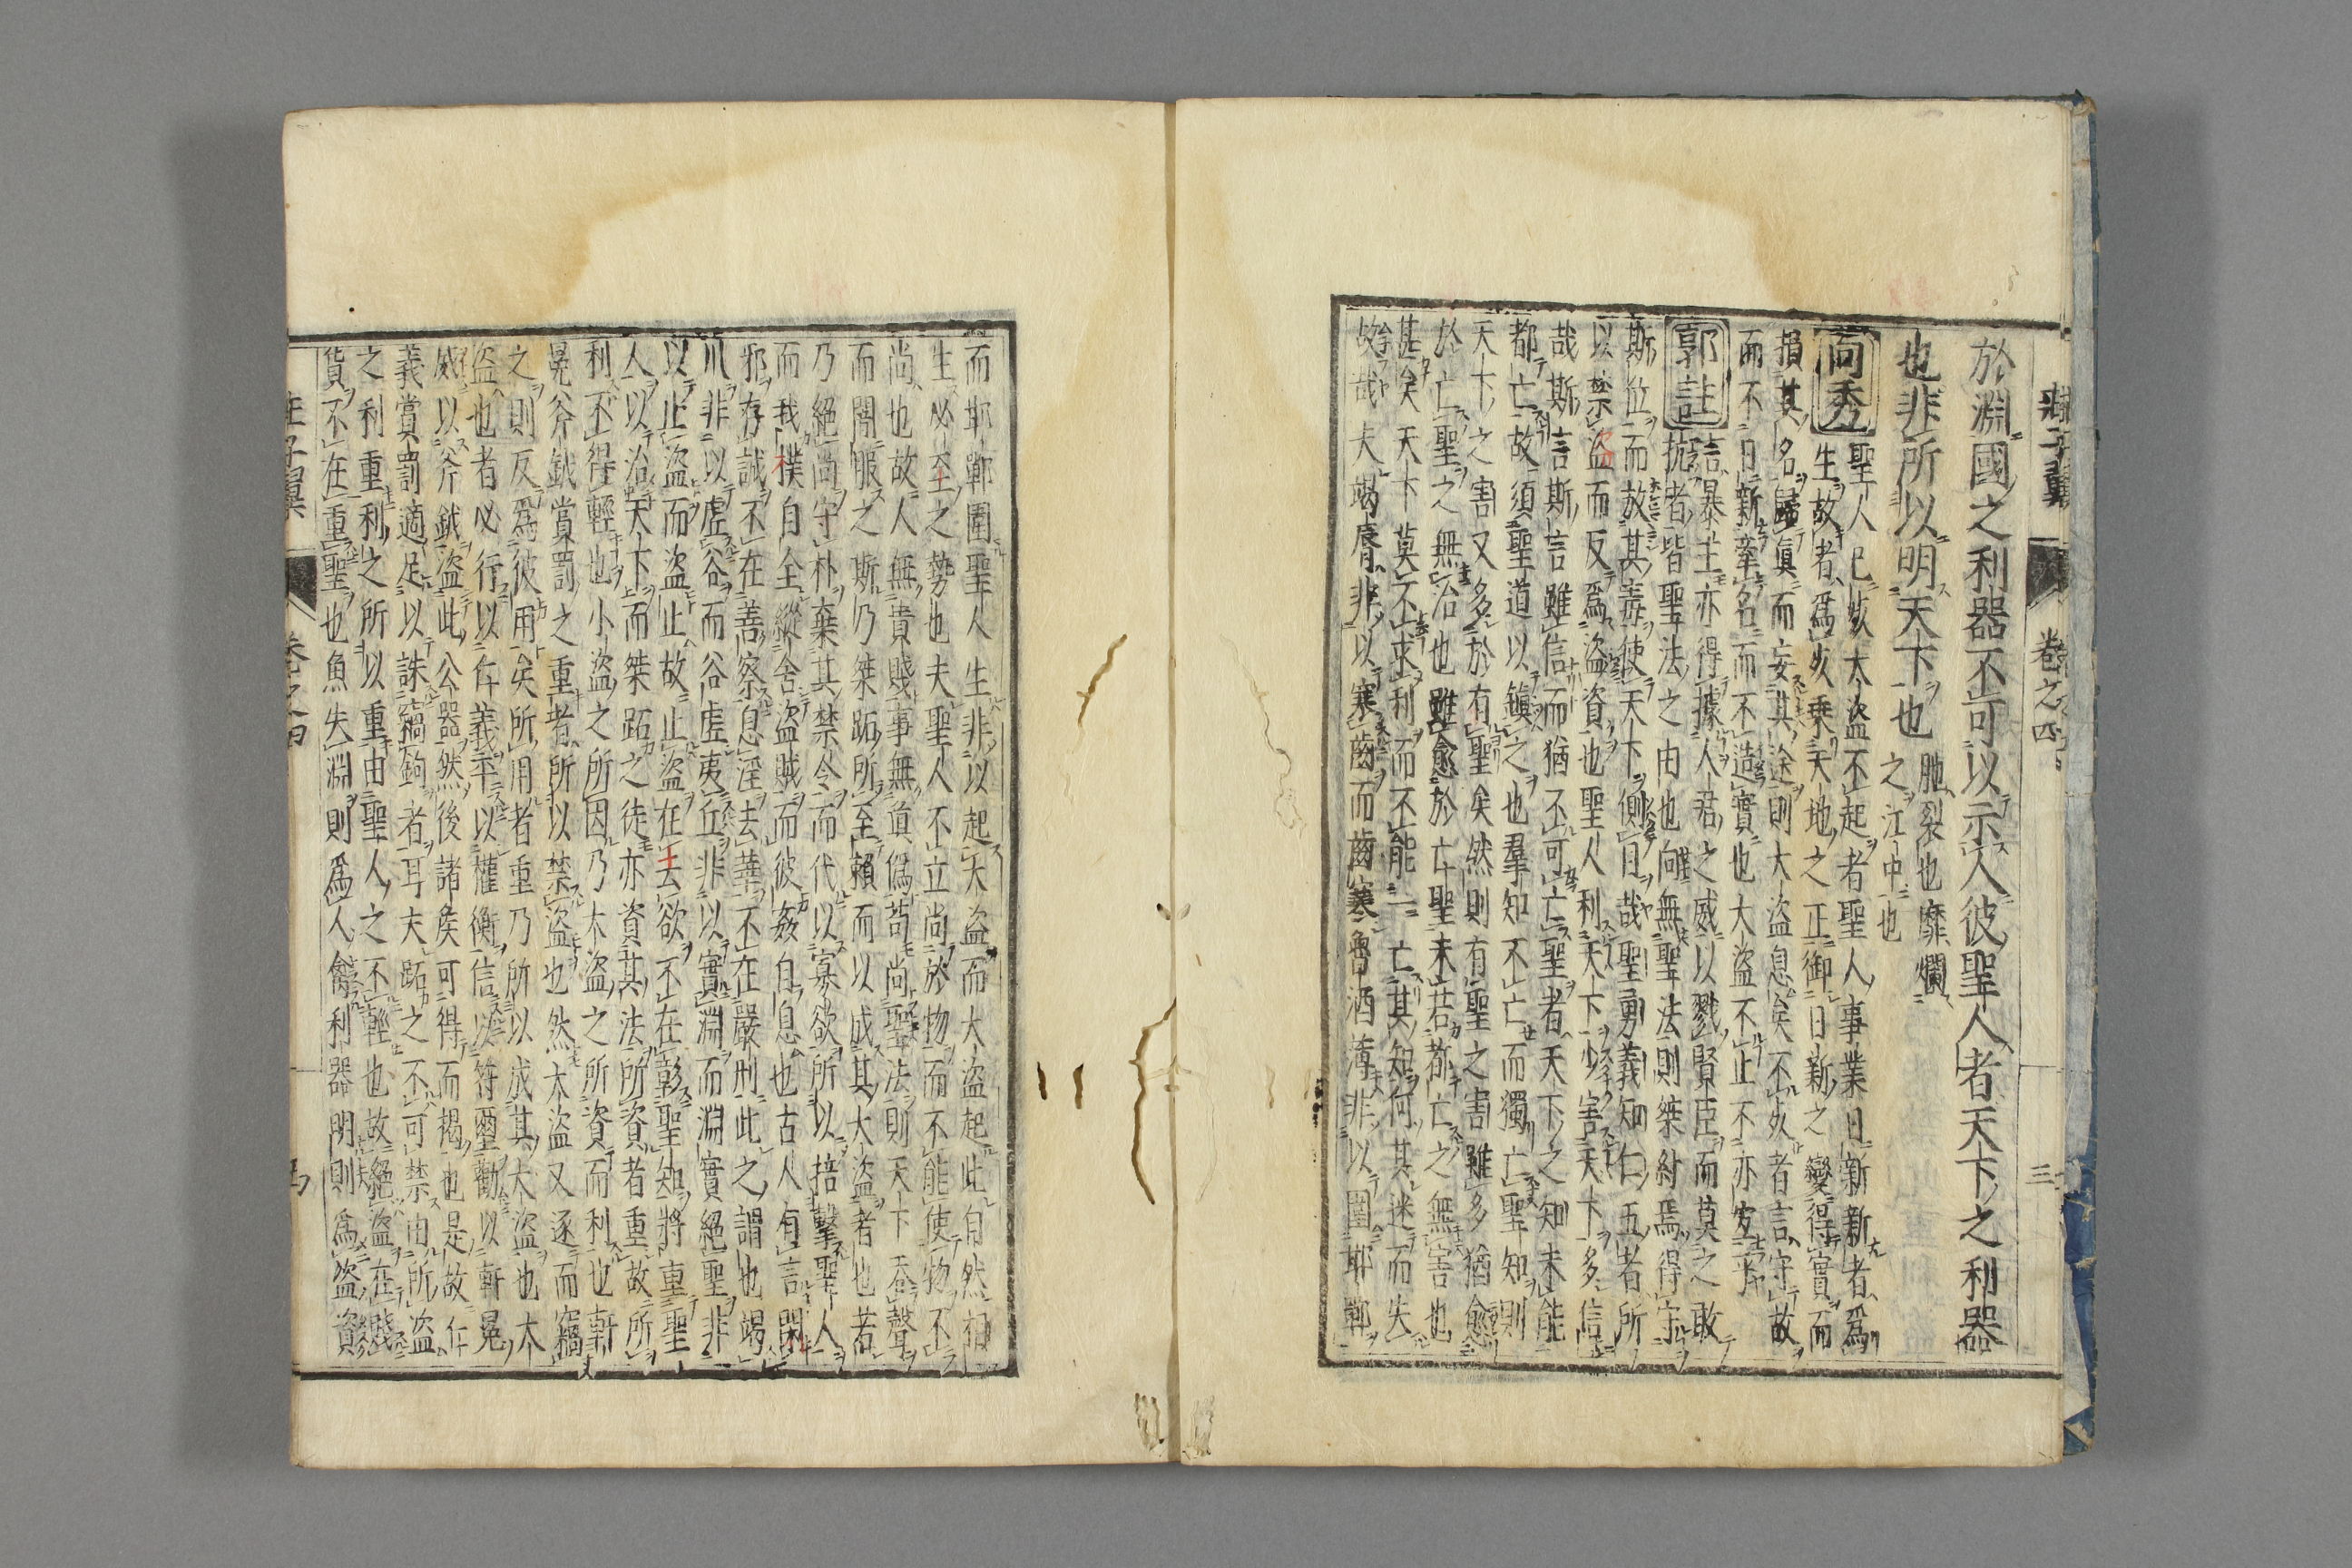 莊子翼
卷之四
三
於淵國之利器不可以示人彼聖人者天下之利器
也非所以明天下也
胣裂也靡爛
之江中也
向秀
聖人已死大盜不起者聖人事業日新新者爲
生故者爲死乘天地之正御日新之變得實而
損其名歸眞而妄其途則大盜息矣不死者言守故
而不日新牽名而不造實也大盜不止不亦宜乎
郭註
言暴主亦得據人君之威以戮賢臣而莫之敢
抗者皆聖法之由也向無聖法則桀紂焉得守
斯位而放其毒使天下側目哉聖勇義知仁五者所
以禁盜而反爲盜資也聖人利天下少害天下多信
哉斯言斯言雖信而猶不可亡聖者天下之知未能
都亡故須聖道以鎭之也羣知不亡而獨亡聖知則
天下之害又多於有聖矣然則有聖之害雖多猶愈
於亡聖之無治也雖愈於亡聖未若都亡之無害也
甚矣天下莫不求利而不能一亡其知何其迷而失
故哉夫竭脣非以寒齒而齒寒魯酒薄非以圍邯鄲
而邯鄲圍聖人生非以起大盜而大盜起此自然相
生必至之勢也夫聖人不立尚於物而不能使物不
尚也故人無貴賤事無眞僞苟尚聖法則天下吞聲
而闇服之斯乃桀跖所至賴而以成其大盜者也若
乃絕尚守朴棄其禁令而代以寡欲所以掊擊聖人
而我樸自全縱舍盜賊而彼姦自息也古人有言閑
邪存誠不在善察息淫去華不在嚴刑此之謂也竭
川非以虛谷而谷虛夷丘非以實淵而淵實絕聖非
以止盜而盜止故止盜在去欲不在彰聖知將重聖
人以治天下而桀跖之徒亦資其法所資者重故所
利不得輕也小盜之所因乃大盜之所資而利也軒
冕斧鉞賞罰之重者所以禁盜也然大盜又逐而竊
之則反爲彼用矣所用者重乃所以成其大盜也大
盜也者必行以仁義平以權衡信以符璽勸以軒冕
威以斧鉞盜此公器然後諸矦可得而揭也是故仁
義賞罰適足以誅竊鉤者耳夫跖之不可禁由所盜
之利重利之所以重由聖人之不輕也故絕盜在賤
貨不在重聖也魚失淵則爲人禽利器明則爲盜資